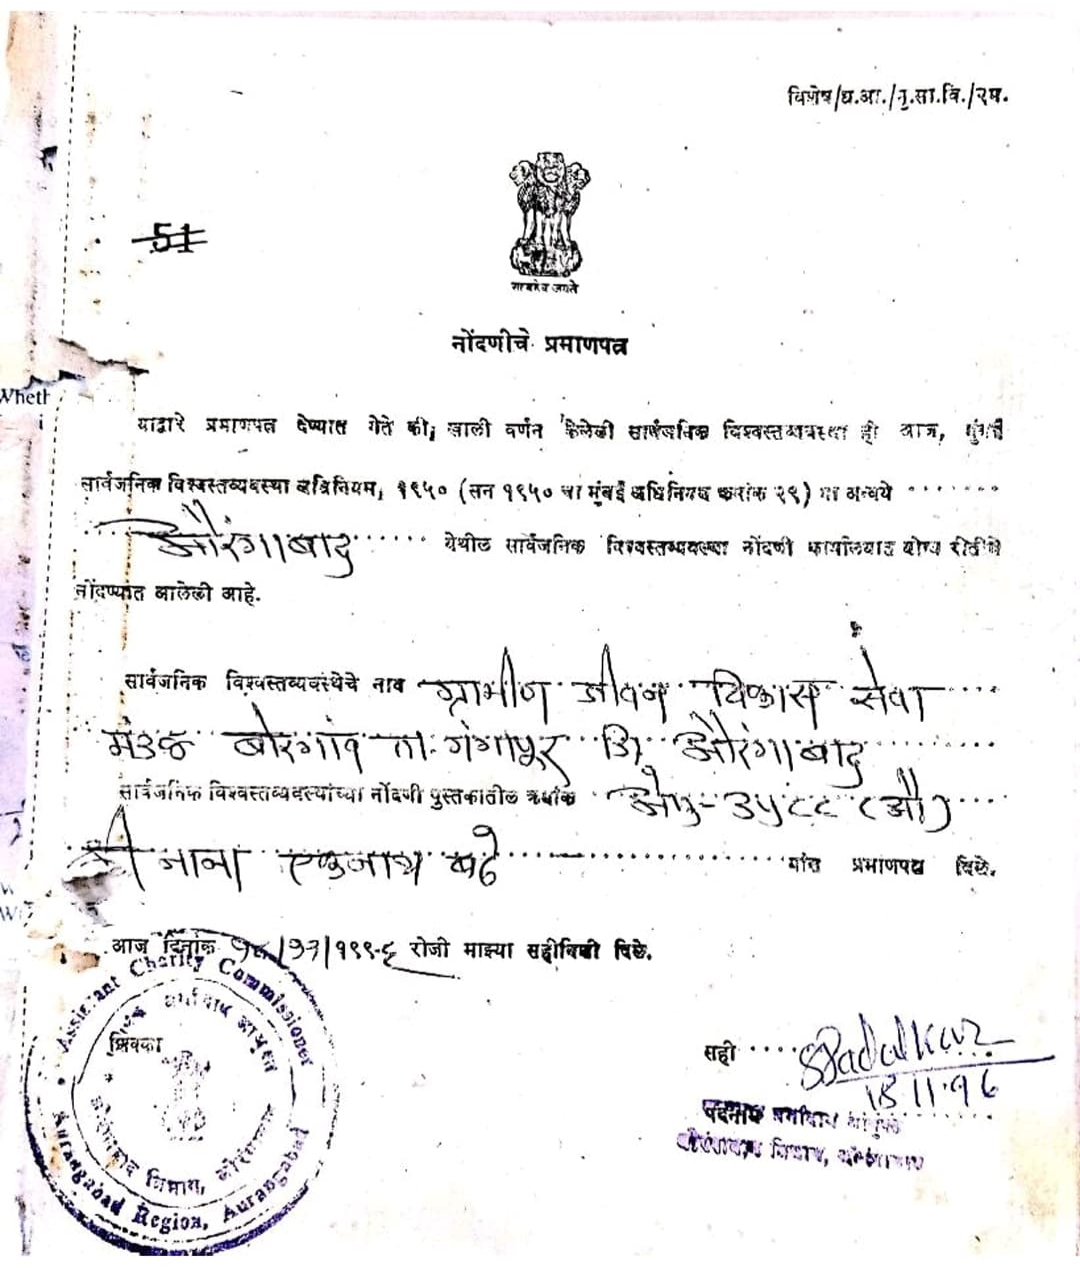 विशेष/ध.आ./नृ.सा.वि./२म.
51
सत्यमेव जयते
नोंदणीचे प्रमाणपत्र
Wheth
याद्वारे प्रमाणपत्र देण्यात येते की, खाली वर्णन केलेली सार्वजनिक विश्वस्तव्यवस्था ही आज, मुंबई
सार्वजनिक विश्वस्तव्यवस्था अधिनियम, १९५० (सन १९५० चा मुंबई अधिनियम क्रमांक २९) या अन्वये
औरंगाबाद येथील सार्वजनिक विश्वस्तव्यवस्था नोंदणी कार्यालयात योग्य रीतीने
नोंदण्यात आलेली आहे.
सार्वजनिक विश्वस्तव्यवस्थेचे नाव ग्रामीण जीवन विकास सेवा
मंडळ बोरगांव ता. गंगापूर जि. औरंगाबाद
सार्वजनिक विश्वस्तव्यवस्थांच्या नोंदणी पुस्तकातील क्रमांक ३५८८ (औ)
श्री नाना एकनाथ बढे यांस प्रमाणपत्र दिले.
आज दिनांक १८/११/१९९६ रोजी माझ्या सहीनिशी दिले.
Assistant Charity Commissioner
शिक्का
Aurangabad Region, Aurangabad
सही SPadalkar
18.11.96